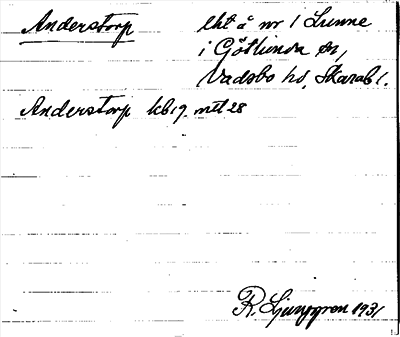 Anderstorp
lht å nr 1 Lunne
i Götlunda sn,
Vadsbo hd, Skarab l.
Anderstorp kb 19. mtl 28
R. Ljunggren 1931